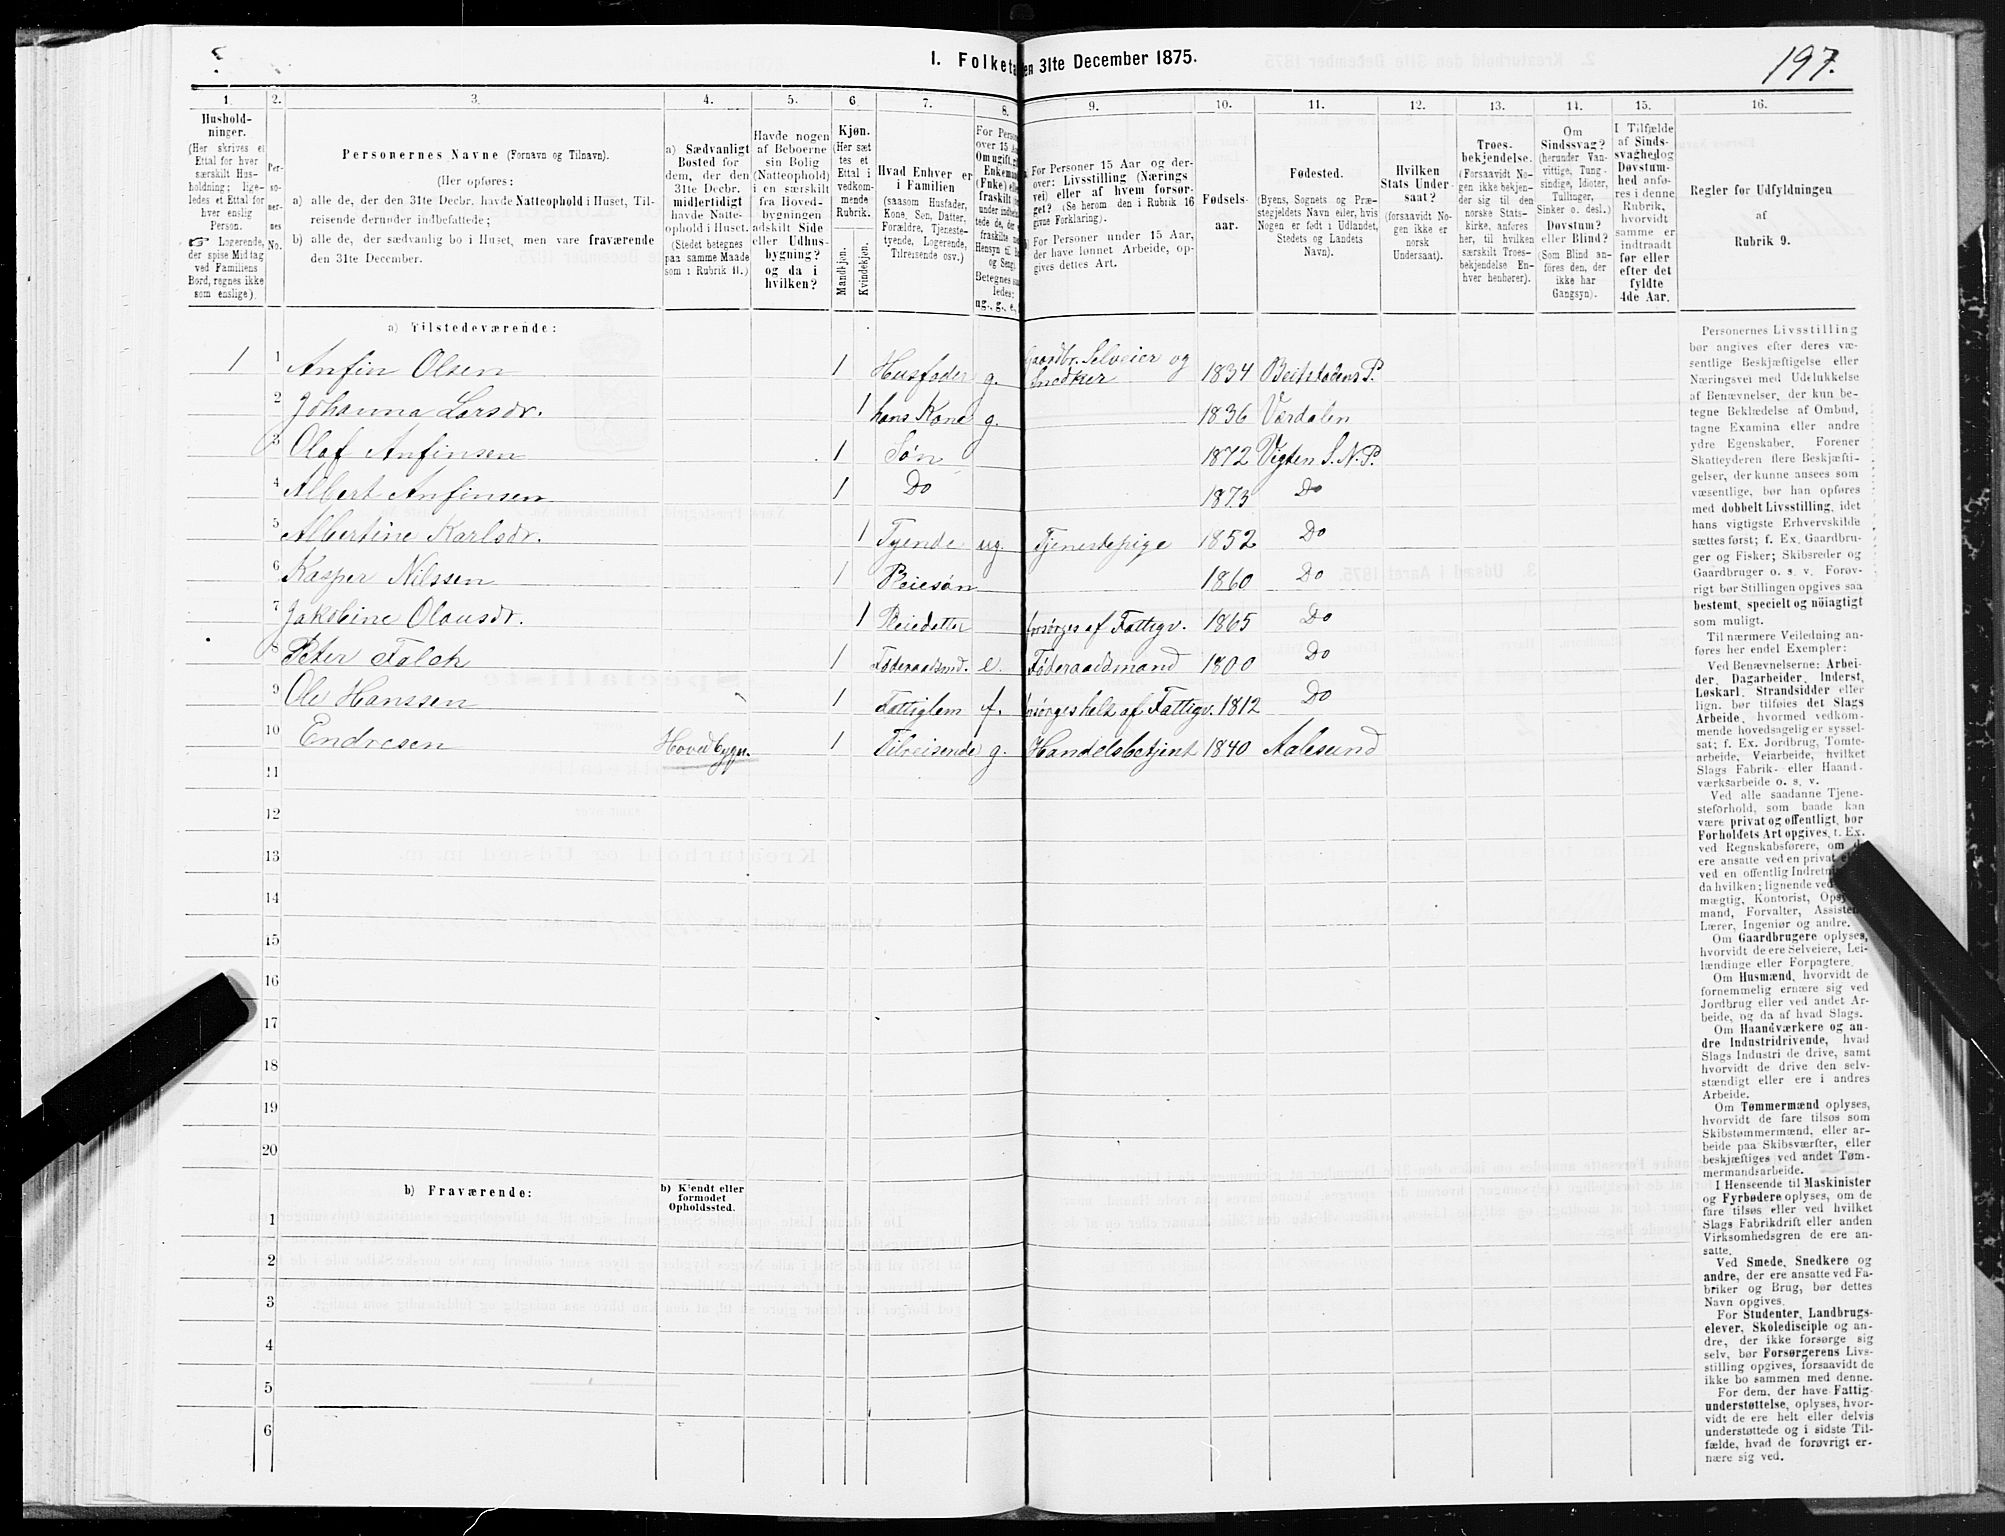 197.
I. Folketa en 31te December 1875.
1. 2. 3. 4. 5. 6. 7. 8. 9. 10. 11. 12. 13. 14. 15. 16.
Hushold-
ninger.
(Her skrives et
Ettal for hver
særskilt Hus-
holdning; lige-
ledes et Ettal for
hver enslig
Person.
☞ Logerende,
der spise Middag
ved Familiens
Bord, regnes ikke
som enslige).
Per-
so-
ner-
nes
No.
Personernes Navne (Fornavn og Tilnavn).
(Her opføres:
a) alle de, der den 31te Decbr. havde Natteophold i Huset, Til-
reisende derunder indbefattede;
b) alle de, der sædvanlig bo i Huset, men vare fraværende
den 31te December.
a) Sædvanligt
Bosted for
dem, der den
31te Decbr.
midlertidigt
havde Natte-
ophold i Huset.
(Stedet betegnes
paa samme Maade
som i Rubrik 11.)
Havde nogen
af Beboerne
sin Bolig
(Natteophold)
i en særskilt
fra Hoved-
bygningen
adskilt Side
eller Udhus-
bygning?
og da i
hvilken?
Kjøn.
(Her sæt
tes et
Ettal i
vedkom-
mende
Rubrik.
Mandkjøn.
Kvindekjøn.
Hvad Enhver er
i Familien
(saasom Husfader,
Kone, Søn, Datter,
Forældre, Tjeneste-
tyende, Logerende,
Tilreisende osv.)
For Perso
over 15 Aa
Om ugift, gi
Enkeman
(Fnke) elle
fraskilt
under indbe
tede de, de
fraskilte me
Hensyn til Bo
og Seng).
Betegnes saa
ledes:
ug., g., e.,
For Personer 15 Aar og der-
over: Livsstilling (Nærings
vei) eller af hvem forsør-
get? (Se herom den i Rubrik 16
givne Forklaring).
For Personer under 15 Aar,
der have lønnet Arbeide, op-
gives dettes Art.
Fødsels-
aar.
Fødested.
(Byens, Sognets og Præ-
stegjeldets Navn eller, hvis
Nogen er født i Udlandet,
Stedets og Landets
Navn).
Hvilken
Stats Under-
saat?
(forsaavidt No-
gen ikke er
norsk
Undersaat).
Troes-
bekjendelse.
(Forsaavidt No-
gen ikke bekjen-
der sig til den
norske Stats-
kirke, anføres
her, til hvilken
særskilt Troes-
bekjendelse En-
hver henhører).
Om
Sindssvag?
(herunder Van-
vittige, Tung-
sindige, Idioter,
Tullinger,
Sinker o. desl.)
Døvstum?
eller Blind?
(Som Blind an-
føres den, der
ikke har
Gangsyn).
I Tilfælde
af Sinds-
svaghed og
Døvstum-
hed anfø-
res i denne
Rubrik,
hvorvidt
samme er
indtraadt
før eller
efter det
fyldte
4de Aar.
Regler for Udfyldningen
af
Rubrik 9.
a) Tilstedeværende:
1 1 Anfin Olsen 1 Husfader g. Gaardbr. Selveier og Snedker 1834 Beitstadens P.
2 Johanna Larsdr. 1 hans Kone g. 1836 Værdalen
3 Olaf Anfinsen 1 Søn 1872 Vigten S. N. P.
4 Albert Anfinsen 1 Do 1873 Do
5 Albertine Karlsdr. 1 Tyende ug. Tjenestepige 1852 Do
6 Kasper Nilssen 1 Pleiesøn 1860 Do
7 Jakobine Olausdr. 1 Pleiedatter forsørges af Fattigv. 1865 Do
8 Peter Falch 1 Føderaadsmd. e. Føderaadmand 1800 Do
9 Ole Hanssen 1 Fattiglem f. forsørges helt af Fattigv. 1812 Do
10 Endresen Hovedbygn. 1 Tilreisende g. Handelsbetjent 1840 Aalesund
11
12
13
14
15
16
17
18
19
20
b) Fraværende:
b) Kjendt eller
formodet
Opholdssted.
1
2
3
4
5
6
Personernes Livsstilling
bør angives efter deres væ-
sentlige Beskjæftigelse eller
Næringsvei med Udelukkelse
af Benævnelser, der kun be-
tegne Beklædelse af Ombud,
tagne Examina eller andre
ydre Egenskaber. Forener
Skatteyderen flere Beskjæfti-
gelser, der kunne ansees som
væsentlige, bør han opføres
med dobbelt Livsstilling, idet
hans vigtigste Erhvervskilde
sættes først; f. Ex. Gaardbru-
ger og Fisker; Skibsreder og
Gaardbruger o. s. v. Forøv-
rigt bør Stillingen opgives saa
bestemt, specielt og nöiagtigt
som muligt.
Til nærmere Veiledning an-
føres her endel Exempler:
Ved Benævnelserne: Arbei-
der, Dagarbeider, Inderst,
Løskarl, Strandsidder eller
lign. bør tilføies det Slags
Arbeide, hvormed vedkom-
mende hovedsagelig er syssel-
sat; f. Ex. Jordbrug, Tomte-
arbeide, Veiarbeide, hvilket
Slags Fabrik- eller Haand-
værksarbeide o. s. v.
Ved alle saadanne Tjene-
steforhold, som baade kan
være privat og offentligt, bør
Forholdets Art opgives, t. Ex.
ved Regnskabsførere, om d
ere ansatte ved en privat el
ved en offentlig Indretnin
da hvilken; lignende ved
mægtig, Kontorist, Opsy
mand, Forvalter, Assisten
Lærer, Ingeniør og andre.
Om Gaardbrugere oplyses,
hvorvidt de ere Selveiere, Lei-
lændinge eller Forpagtere.
Om Husmænd, hvorvidt de
fornemmelig ernære sig ved
Jordbrug eller ved andet Ar-
beide, og da af hvad Slags.
Om Haandværkere og an-
dre Industridrivende, hvad
Slags Industri de drive, samt
hvorvidt de drive den selv-
stændigt eller ere i andres
Arbeide.
Om Tømmermænd oplyses,
hvorvidt de fare tilsøs som
Skibstømmermænd, eller ar-
beide paa Skibsværfter, eller
beskjæftiges ved andet Tøm-
mermandsarbeide.
I Henseende til Maskinister
og Fyrbødere oplyses, om de
fare tilsøs eller ved hvilket
Slags Fabrikdrift eller anden
Virksomhedsgren de ere an-
satte.
Ved Smede, Snedkere og
andre, der ere ansatte ved Fa-
briker og Brug, bør dettes
Navn opgives.
For Studenter, Landbrugs-
elever, Skoledisciple og an-
dre, der ikke forsørge sig
selv, bør Forsørgerens Livs-
stilling opgives, forsaavidt de
ikke bo sammen med denne.
For dem, der have Fattig-
understøttelse, oplyses, hvor-
vidt de ere helt eller delvis
understøttede og i sidste Til-
fælde, hvad de forøvrigt er-
nære sig ved.